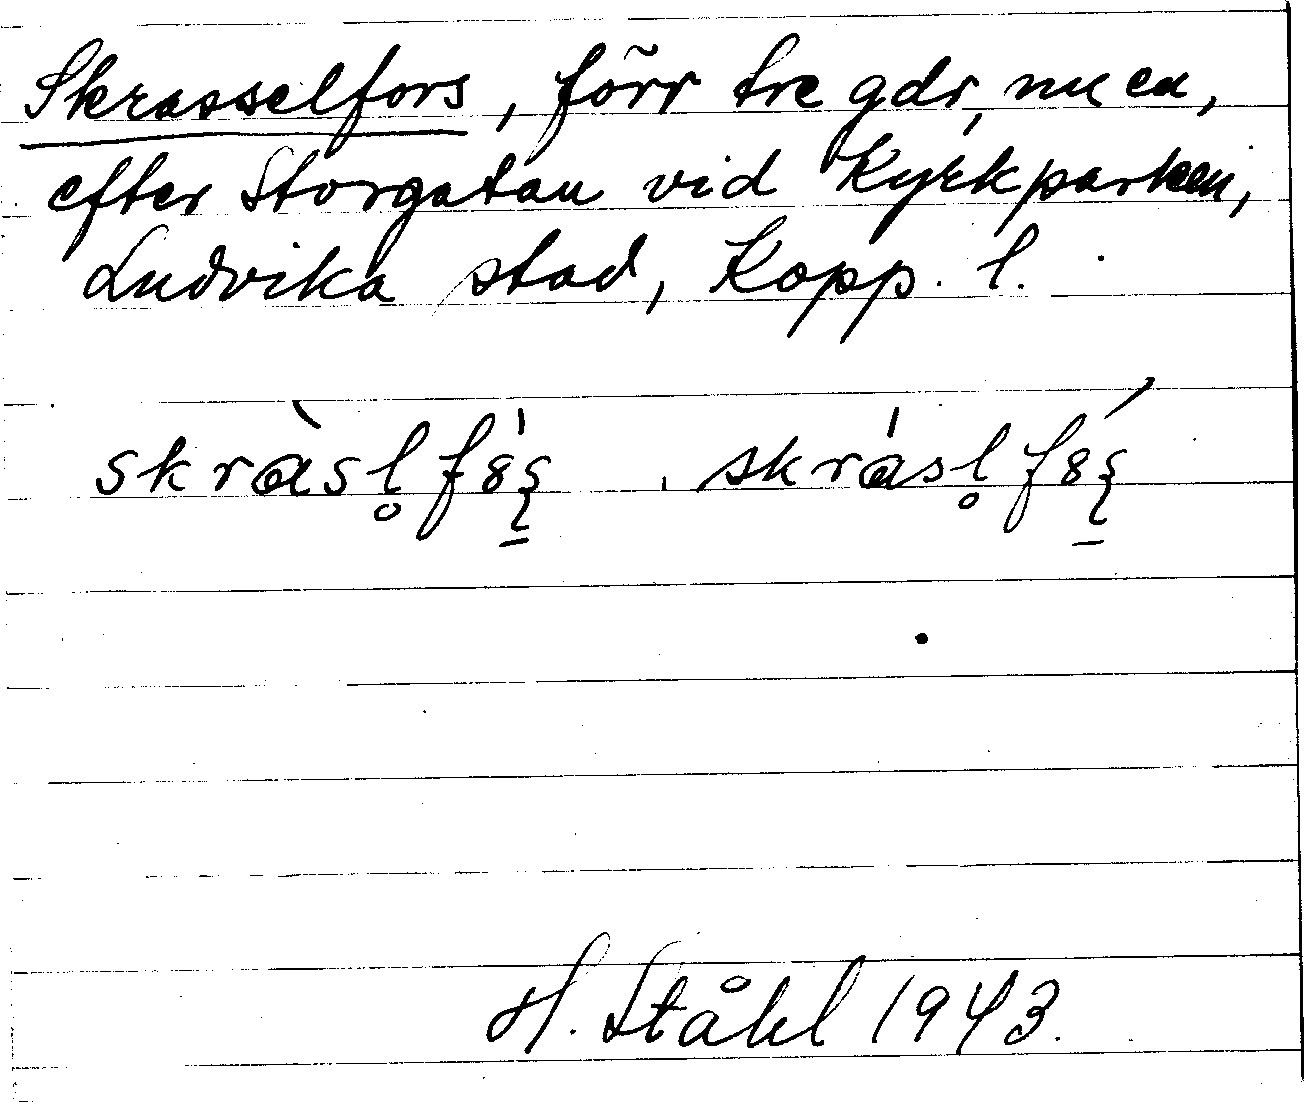 Skrasselfors, förr tre gdr, nu en,
efter Storgatan vid Kyrkparken,
Ludvika stad, Kopp. l.
skràsl̥fȣ́ʂ skrásl̥fȣʂ́
H. Ståhl 1943.